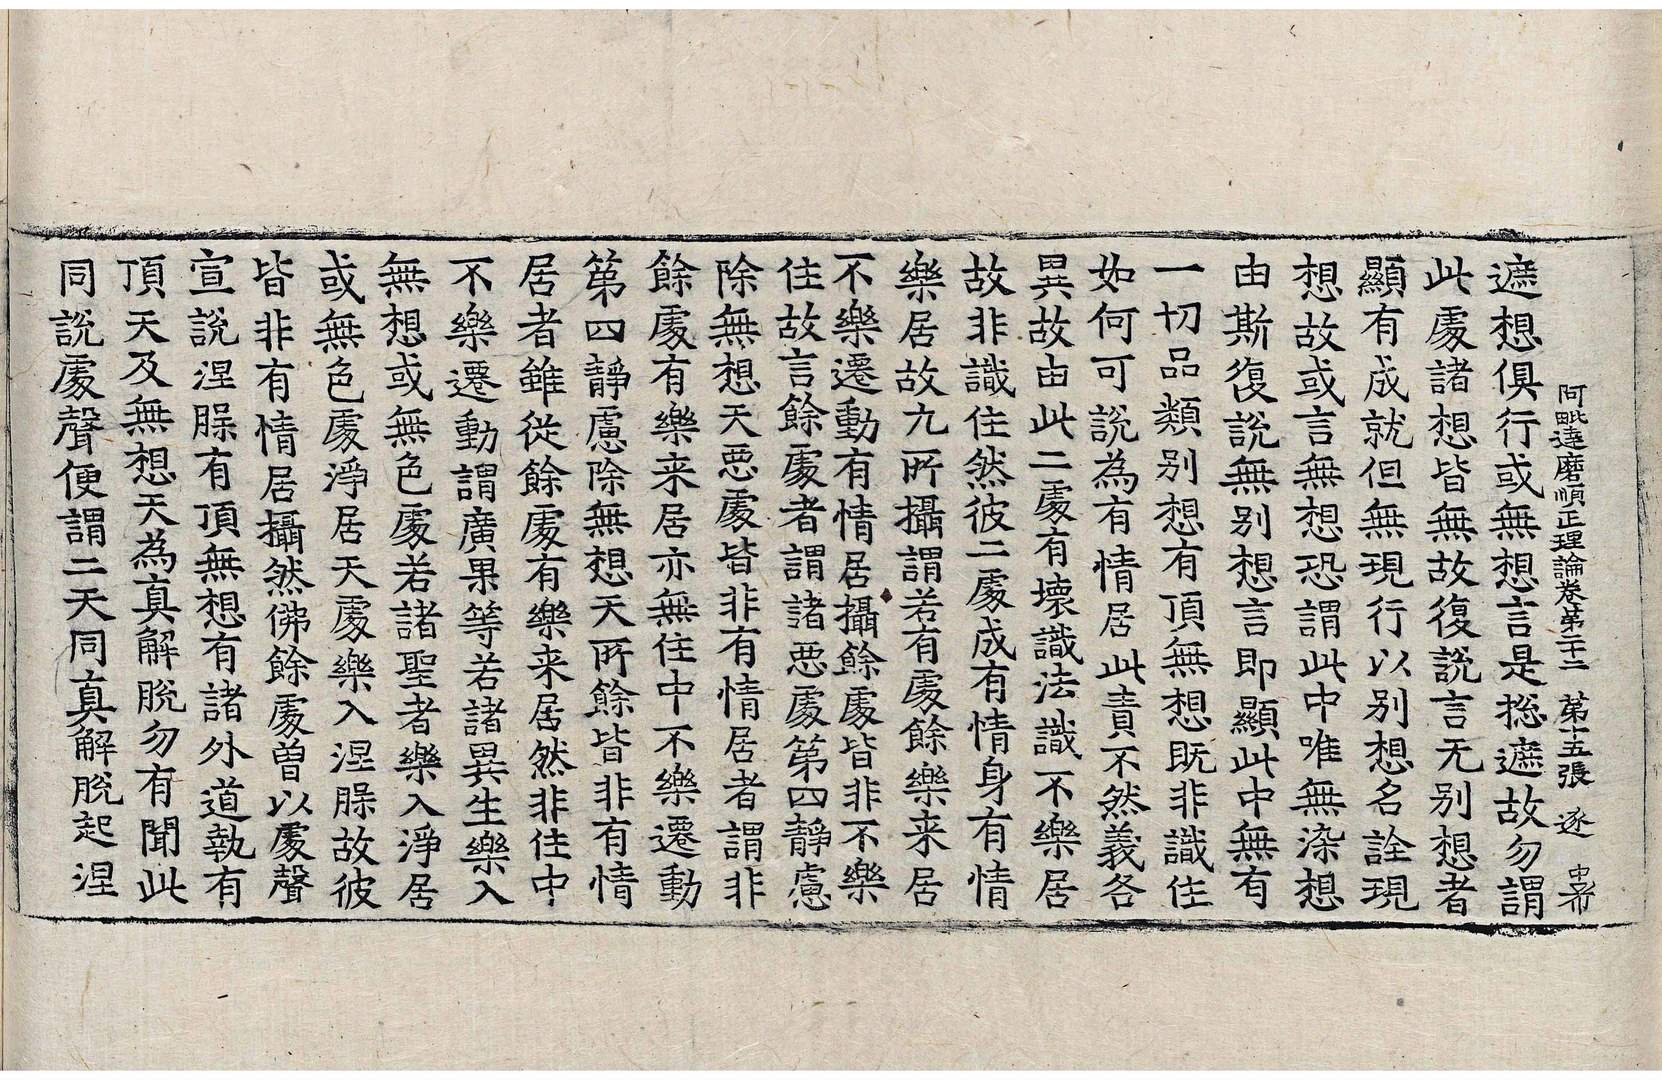 阿毗達磨順正理論卷第二十二 第十五張 逐
遮想俱行或無想言是揔遮故勿謂
此處諸想皆無故復說言无別想者
顯有成就但無現行以別想名詮現
想故或言無想恐謂此中唯無染想
由斯復說無別想言即顯此中無有
一切品類別想有頂無想既非識住
如何可說為有情居此責不然義各
異故由此二處有壞識法識不樂居
故非識住然彼二處成有情身有情
樂居故九所攝謂若有處餘樂来居
不樂遷動有情居攝餘處皆非不樂
住故言餘處者謂諸惡處第四靜慮
除無想天惡處皆非有情居者謂非
餘處有樂来居亦無住中不樂遷動
第四靜慮除無想天所餘皆非有情
居者雖從餘處有樂来居然非住中
不樂遷動謂廣果等若諸異生樂入
無想或無色處若諸聖者樂入淨居
或無色處淨居天處樂入涅槃故彼
皆非有情居攝然佛餘處曾以處聲
宣說涅槃有頂無想有諸外道執有
頂天及無想天為真解脫勿有聞此
同說處聲便謂二天同真解脫起涅